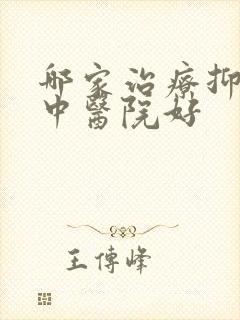 那家治療抑
中醫院好
王傳峰